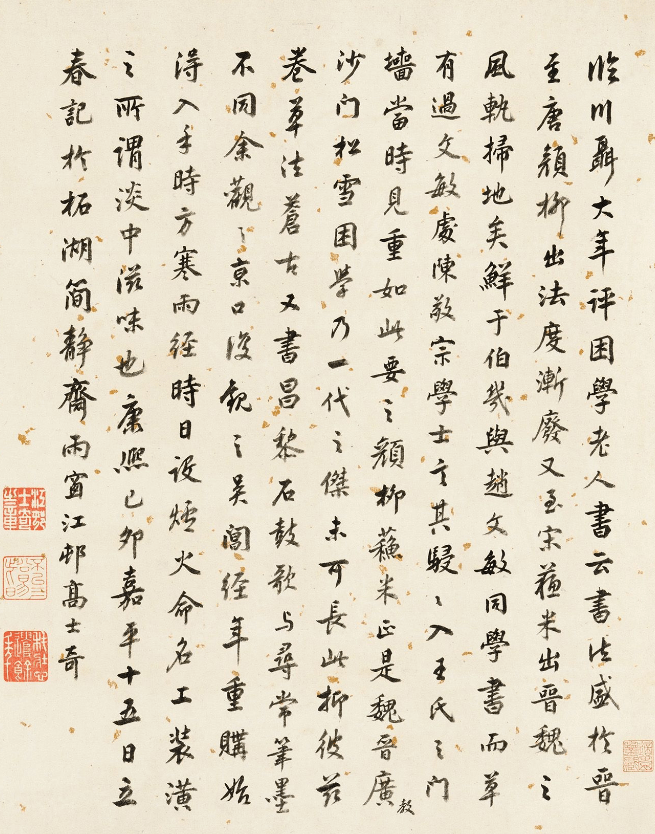 臨川聶大年評困學老人書云書法盛於晉
至唐顏柳出法度漸廢又至宋蘓米出晉魏之
風軌掃地矣鮮于伯幾與趙文敏同學書而草
有過文敏處陳敬宗學士言其駸〻入王氏之門
墻當時見重如此要之顏柳蘓米正是魏晉廣
教
沙門松雪困學乃一代之傑未可長此抑彼茲
卷草法蒼古又書昌黎石鼓歌与尋常筆墨
不同余觀之京口復觀之吴閶經年重購始
淂入手時方寒雨經時日設爐火命名工装潢
之所謂淡中滋味也康熈己卯嘉平十五日立
春記於柘湖簡靜齋雨窗江邨高士奇